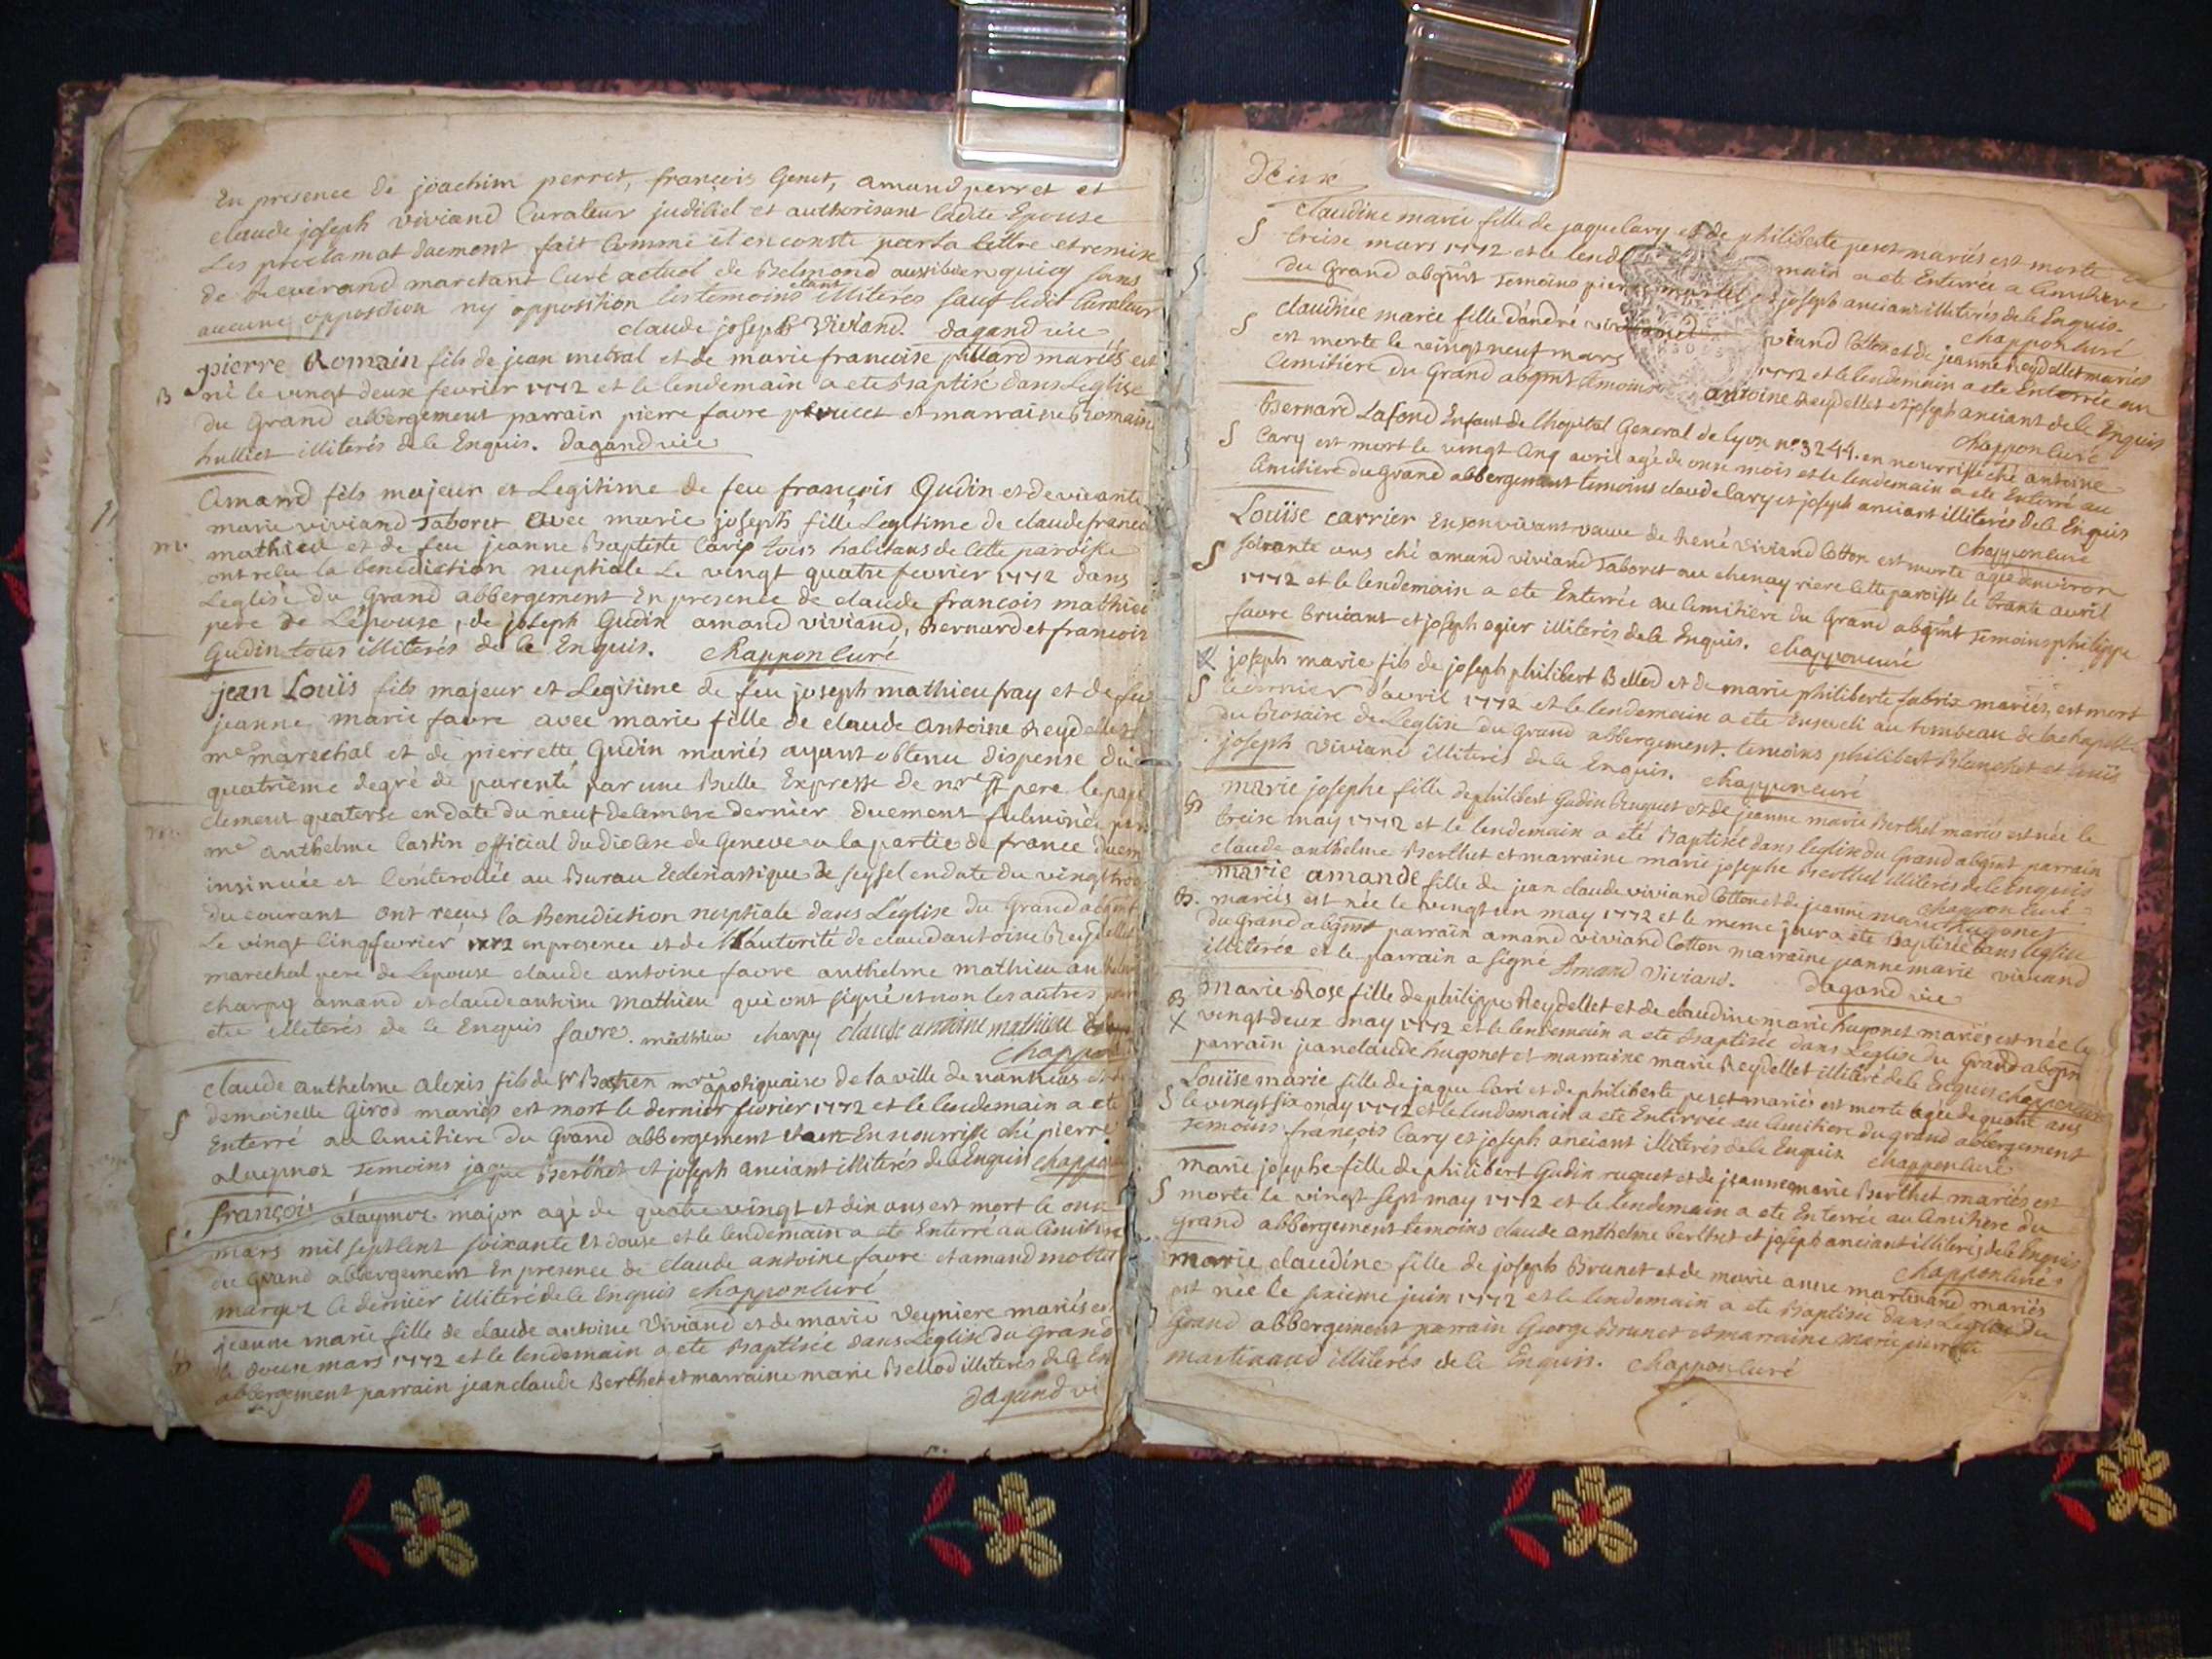 En presence de joachim perret, françois Genet, amand perret et
claude joseph viviand Curateur judiciel et authorisant ladite Epouse
Les proclamat duement fait comme il en conste par la lettre et remise
de Reverand marchant Curé actuel de Belmond aussi bien quicy sans
aucune opposition ny opposition les temoins etant illiterés sauf ledit Curateur
claude joseph Viviand. dagand vic
pierre Romain fils de jean metral et de marie francoise pillard mariés est
B né le vingt deux fevrier 1772 et le lendemain a eté Baptisé dans Leglise
du Grand abbergement parrain pierre favre et marraine Romaine
hulliet illiterés de le Enquis. dagand vic
Amand fils majeur et Legitime de feu françois Gudin et de vivante
marie viviand Taboret avec marie joseph fille Legitime de claude francois
m. mathieu et de feu jeanne Baptiste Cari tous habitans de cette paroisse
ont reçu la benediction nuptiale Le vingt quatre fevrier 1772 dans
Leglise du Grand abbergement En presence de claude francois mathieu
pere de Lepouse, de joseph Gudin amand viviand, Bernard et francois
Gudin tous illiterés de le Enquis. chappon curé
jean Louis fils majeur et Legitime de feu joseph mathieu fray et de feu
jeanne marie favre avec marie fille de claude Antoine Reydellet
me marechal et de pierrette Gudin mariés ayant obtenu dispense du
quatrieme degré de parenté par une Bulle Expresse de nre st pere le pape
clement quatorse en date du neuf decembre dernier duement fulminée par
m. me anthelme Castin official du diocese de Geneve a la partie de france duem
insinuée et controllée au Bureau Eclesiastique de seyssel en date du vingt trois
du courant ont reçus la Benediction nuptiale dans Léglise du Grand abgmt
Le vingt cinq fevrier 1772 en presence et de Lautorité de claudantoine Reydellet
marechal pere de Lepouse claude antoine favre anthelme mathieu anthelme
charpy amand et claude antoine mathieu qui ont signé et non les autres pour
etre illiterés de le Enquis favre. mathieu charpy claude antoine mathieu
chappon
claude anthelme alexis fils de sr Bastien mre apotiquaire de la ville de nanthuas et de
S demoiselle Girod mariés est mort le dernier fevrier 1772 et le lendemain a eté
Enterré au Cimitiere du Grand abbergement En nourrisse ché pierre
alaymos Temoins jaque Berthet et joseph anciant illiterés de le Enquis chappon
françois alaymos major agé de quatre vingt et dix ans est mort le onze
S. mars mil sept cent soixante et douse et le lendemain a eté Enterré au Cimitiere
du Grand abbergement En presence de claude antoine favre et amand mottet
marquz le dernier illiteré de le Enquis chappon curé
jeanne marie fille de claude antoine Viviand et de marie veyniere mariés est
B le douse mars 1772 et le lendemain a eté Baptisée dans Léglise du Grand
abbergement parrain jean claude Berthet et marraine marie Bellod illiterés de le En
dagand vi
claudine marie fille de jaque Cary et de philiberte peset mariés est morte le
S treise mars 1772 et le lendemain a eté Enterrée a Cimitiere
du Grand abgmt Temoins pierre mortel et joseph anciant illiterés de le Enquis.
chappon curé
claudine marie fille d'andré viviand Cotton et de jeanne Reydellet mariés
S est morte le vingt neuf mars 1772 et le lendemain a eté Enterrée au
Cimitiere du Grand abgmt temoins antoine Reydellet et joseph anciant de le Enquis
chappon curé
Bernard Lafond Enfant de lhopital General de lyon no 3244. en nourrisse ché antoine
S Cary est mort le vingt cinq avril agé de onze mois et le lendemain a eté Enterré au
Cimitiere du Grand abbergement temoins claude Cary et joseph anciant illiterés de le Enquis
chappon curé
Louise carrier En son vivant vauve de René viviand Cotton est morte agée denviron
S soixante ans ché amand viviand Taboret au chenay riere cette paroisse le trante avril
1772 et le lendemain a eté Enterrée au Cimitiere du Grand abgmt Temoins philippe
favre bruiant et joseph ogier illiterés de le Enquis. chappon curé
joseph marie fils de joseph philibert Bellod et de marie philiberte fabrix mariés, est mort
S le dernier d'avril 1772 et le lendemain a eté Enseveli au tombeau de la chapelle
du Rosaire de Leglise du Grand abbergement. temoins philibert Blanchet et Louis
joseph viviand illiterés de le Enquis. chappon curé
marie josephe fille de philibert Gudin Ruquet et de jeanne marie Berthet mariés est née le
B treise may 1772 et le lendemain a eté Baptisée dans leglise du Grand abgmt parrain
claude anthelme Berthet et marraine marie josephe Berthet illiterés de le Enquis
chappon curé
marie amande fille de jean claude viviand Cotton et de jeanne marie hugonet
B. mariés est née le vingt un may 1772 et le meme jour a eté Baptisée dans Leglise
du Grand abgmt parrain amand viviand Cotton marraine jeanne marie viviand
illiterée et le parrain a signé Amand Viviand. dagand vic
marie Rose fille de philippe Reydellet et de claudine marie hugonet mariés est née le
B vingt deux may 1772 et le lendemain a eté Baptisée dans Leglise du Grand abgm
parrain jean claude hugonet et marraine marie Reydellet illiteré de le Enquis chappon curé
Louise marie fille de jaque Cari et de philiberte peset mariés est morte agée de quatre ans
S le vingt six may 1772 et le lendemain a eté Enterrée au Cimitiere du grand abbergement
Temoins françois Cary et joseph anciant illiterés de le Enquis chappon curé
marie josephe fille de philibert Gudin ruquet et de jeanne marie Berthet mariés est
S morte le vingt sept may 1772 et le lendemain a eté Enterrée au Cimitiere du
Grand abbergement temoins claude anthelme berthet et joseph anciant illiterés de le Enquis
chappon curé
marie claudine fille de joseph Brunet et de marie anne martinand mariés
est née le sixieme juin 1772 et le lendemain a eté Baptisée dans Leglise du
Grand abbergement parrain George Brunet et marraine marie pierrette
martinand illiterés de le Enquis. chappon curé